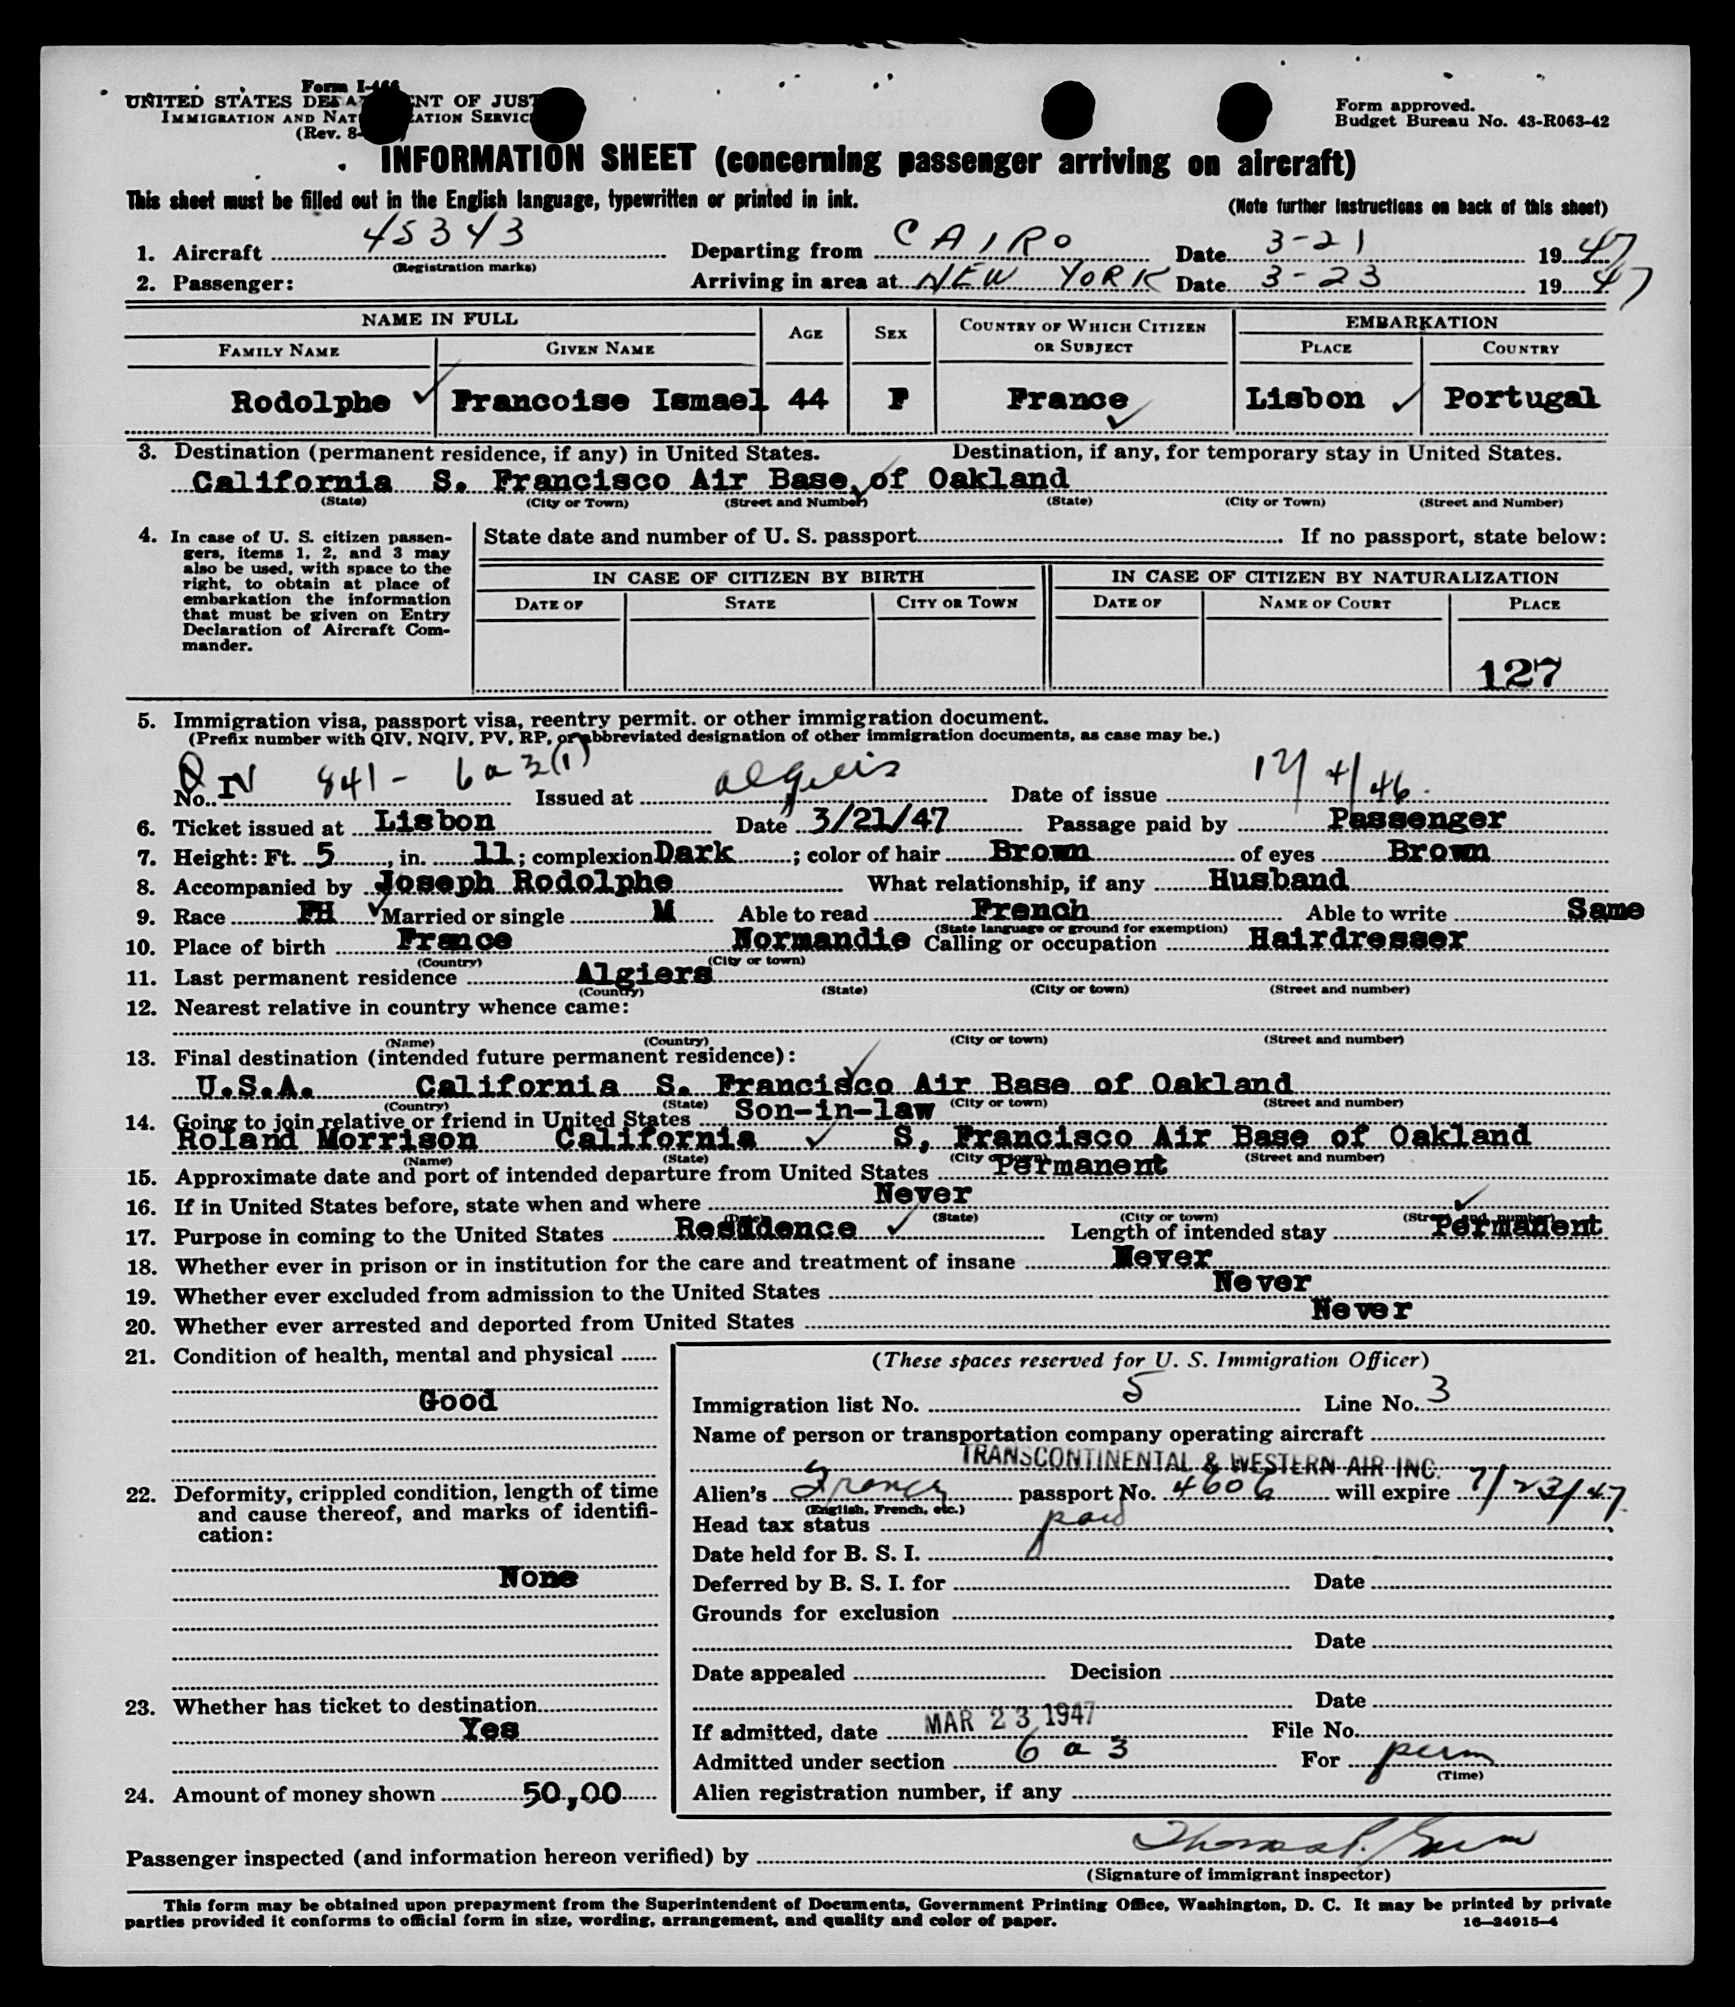 Form I-466
UNITED STATES DEPARTMENT OF JUSTICE
IMMIGRATION AND NATURALIZATION SERVICE
(Rev. 8-
Form approved.
Budget Bureau No. 43-R063-42
INFORMATION SHEET (concerning passenger arriving on aircraft)
This sheet must be filled out in the English language, typewritten or printed in ink.
(Note further instructions on back of this sheet)
1. Aircraft 45343 Departing from CAIRO Date 3-21 1947
(Registration marks)
2. Passenger: Arriving in area at NEW YORK Date 3-23 1947
NAME IN FULL AGE SEX COUNTRY OF WHICH CITIZEN OR SUBJECT EMBARKATION
FAMILY NAME GIVEN NAME PLACE COUNTRY
Rodolphe Francoise Ismael 44 F France Lisbon Portugal
3. Destination (permanent residence, if any) in United States. Destination, if any, for temporary stay in United States.
California S. Francisco Air Base, of Oakland
(State) (City or Town) (Street and Number) (State) (City or Town) (Street and Number)
4. In case of U. S. citizen passen-
gers, items 1, 2, and 3 may
also be used, with space to the
right, to obtain at place of
embarkation the information
that must be given on Entry
Declaration of Aircraft Com-
mander.
State date and number of U. S. passport If no passport, state below:
IN CASE OF CITIZEN BY BIRTH IN CASE OF CITIZEN BY NATURALIZATION
DATE OF STATE CITY OR TOWN DATE OF NAME OF COURT PLACE
127
5. Immigration visa, passport visa, reentry permit, or other immigration document.
(Prefix number with QIV, NQIV, PV, RP, or abbreviated designation of other immigration documents, as case may be.)
No. 841- 6a3(1) Issued at algiers Date of issue 12/4/46.
6. Ticket issued at Lisbon Date 3/21/47 Passage paid by Passenger
7. Height: Ft. 5, in. 11; complexion Dark; color of hair Brown of eyes Brown
8. Accompanied by Joseph Rodolphe What relationship, if any Husband
9. Race FH Married or single M Able to read French Able to write Same
(State language or ground for exemption)
10. Place of birth France Normandie Calling or occupation Hairdresser
(Country) (City or town)
11. Last permanent residence Algiers
(Country) (State) (City or town) (Street and number)
12. Nearest relative in country whence came:
(Name) (Country) (City or town) (Street and number)
13. Final destination (intended future permanent residence):
U.S.A. California S. Francisco Air Base of Oakland
(Country) (State) (City or town) (Street and number)
14. Going to join relative or friend in United States Son-in-law
Roland Morrison California S, Francisco Air Base of Oakland
(Name) (State) (City or town) (Street and number)
15. Approximate date and port of intended departure from United States Permanent
16. If in United States before, state when and where Never
(Date) (State) (City or town) (Street and number)
17. Purpose in coming to the United States Residence Length of intended stay Permanent
18. Whether ever in prison or in institution for the care and treatment of insane Never
19. Whether ever excluded from admission to the United States Never
20. Whether ever arrested and deported from United States Never
21. Condition of health, mental and physical
Good
22. Deformity, crippled condition, length of time
and cause thereof, and marks of identifi-
cation:
None
23. Whether has ticket to destination
Yes
24. Amount of money shown 50,00
(These spaces reserved for U. S. Immigration Officer)
Immigration list No. 5 Line No. 3
Name of person or transportation company operating aircraft
TRANSCONTINENTAL & WESTERN AIR INC.
Alien's France passport No. 4606 will expire 7/23/47
(English, French, etc.)
Head tax status paid
Date held for B. S. I.
Deferred by B. S. I. for Date
Grounds for exclusion
Date
Date appealed Decision
Date
If admitted, date MAR 23 1947 File No.
Admitted under section 6 a 3 For perm
(Time)
Alien registration number, if any
Passenger inspected (and information hereon verified) by Thomas P.
(Signature of immigrant inspector)
This form may be obtained upon prepayment from the Superintendent of Documents, Government Printing Office, Washington, D. C. It may be printed by private
parties provided it conforms to official form in size, wording, arrangement, and quality and color of paper. 16—24915-4